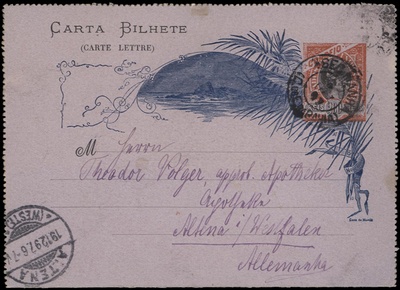 CARTA BILHETE
(CARTE LETTRE)
M Herrn
Theodor Volger approb. Apotheker
Apotheke
Altena i/Westfalen
Allemanha
ALTENA
(WESTF)
19.12.97.6-7